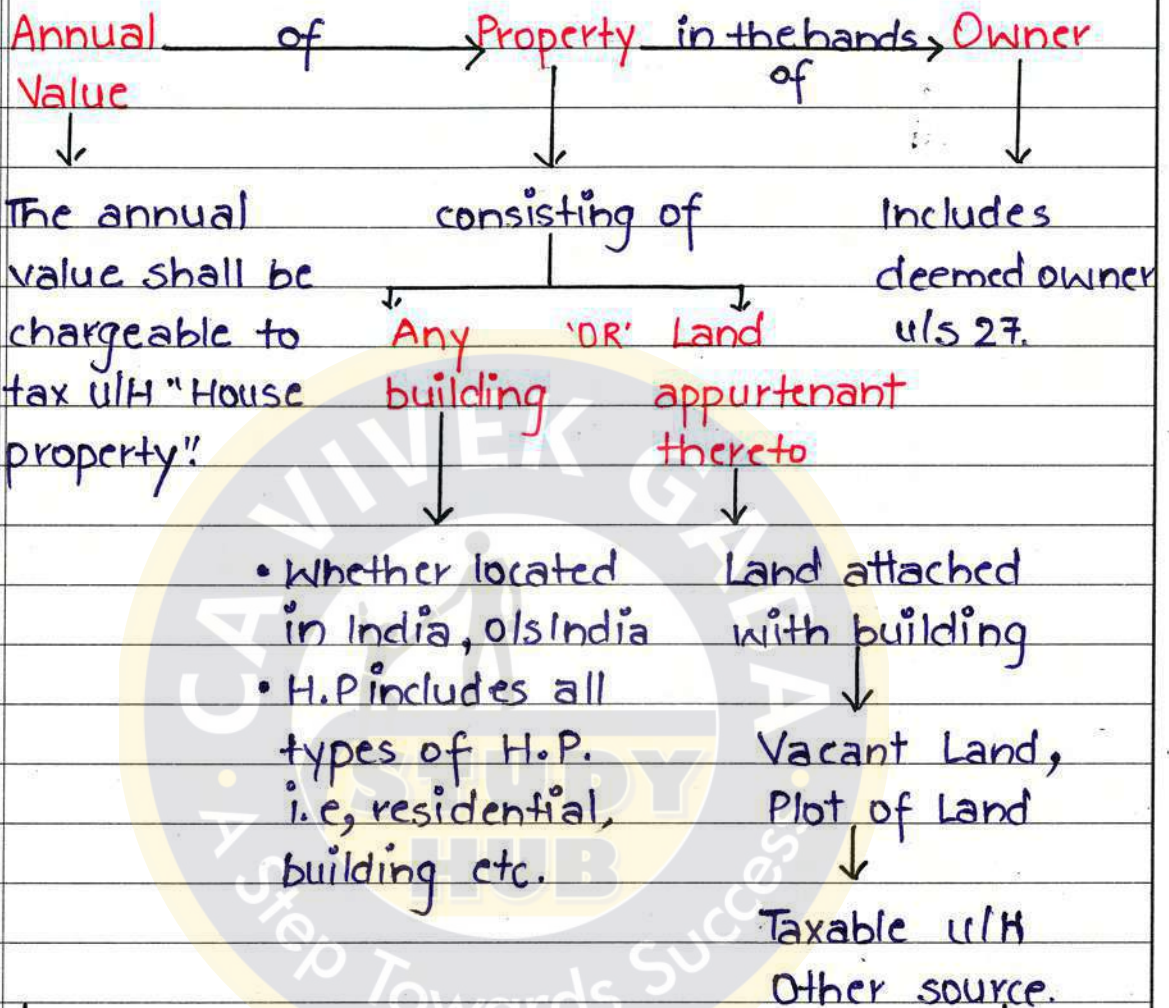 Annual of Property in the hands of Owner
Value
The annual
value shall be
chargeable to
tax u/H "House
property".
consisting of
Any
building
'OR'
Land
appurtenant
thereto
Includes
deemed owner
u/s 27.
• Whether located
in India, o/s India
• H.P includes all
types of H.P.
i.e, residential,
building etc.
Land attached
with building
Vacant Land,
Plot of Land
Taxable u/H
Other source
CA VIVEK GABA
STUDY
HUB
A Step Towards Success